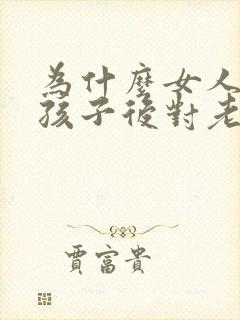 為什麼女人
孩子後對老
賈富貴